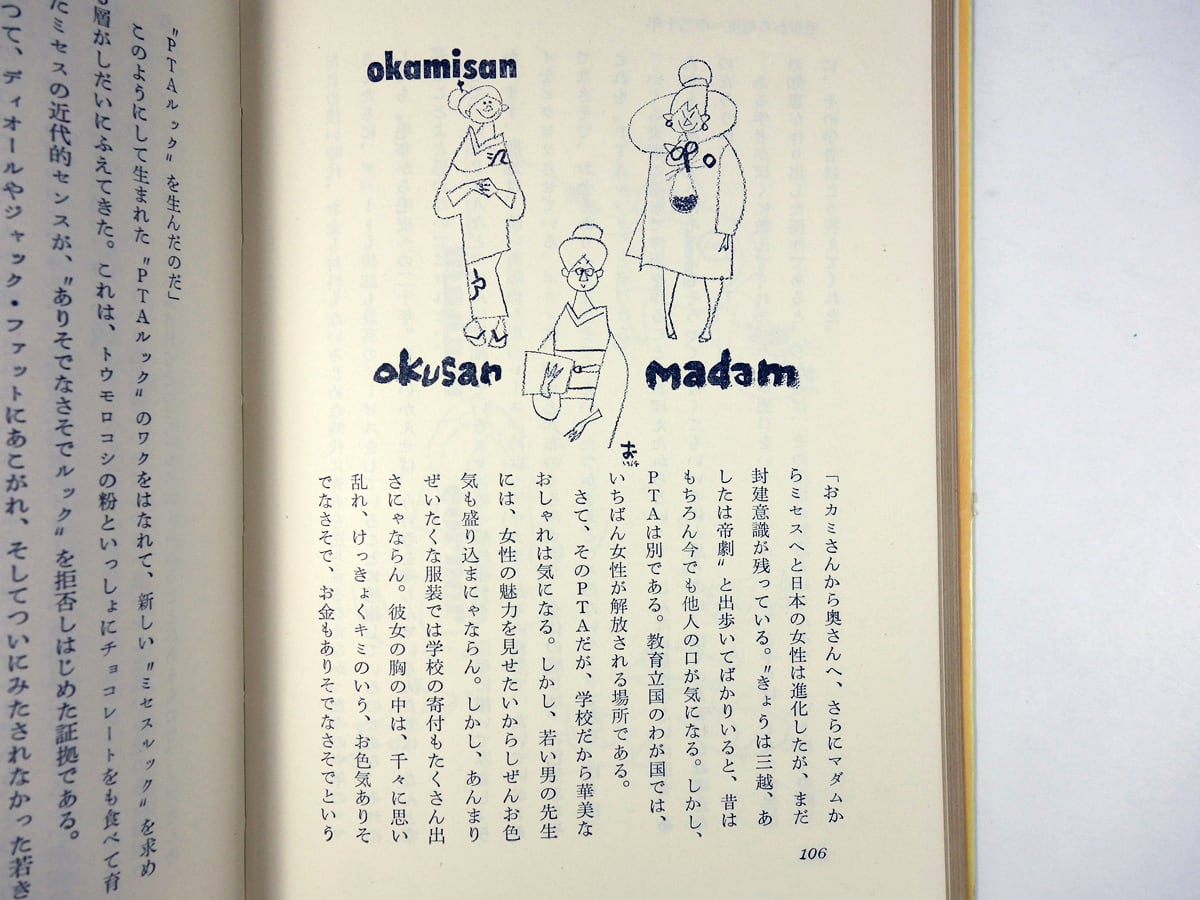 okamisan
okusan
madam
お
「おカミさんから奥さんへ、さらにマダムか
らミセスへと日本の女性は進化したが、まだ
封建意識が残っている。〝きょうは三越、あ
したは帝劇〟と出歩いてばかりいると、昔は
もちろん今でも他人の口が気になる。しかし、
PTAは別である。教育立国のわが国では、
いちばん女性が解放される場所である。
さて、そのPTAだが、学校だから華美な
おしゃれは気になる。しかし、若い男の先生
には、女性の魅力を見せたいからしぜんお色
気も盛り込まにゃならん。しかし、あんまり
ぜいたくな服装では学校の寄付もたくさん出
さにゃならん。彼女の胸の中は、千々に思い
乱れ、けっきょくキミのいう、お色気ありそ
でなさそで、お金もありそでなさそでという
106
〝PTAルック〟を生んだのだ」
このようにして生まれた〝PTAルック〟のワクをはなれて、新しい〝ミセスルック〟を求め
る層がしだいにふえてきた。これは、トウモロコシの粉といっしょにチョコレートをも食べて育
たミセスの近代的センスが、〝ありそでなさそでルック〟を拒否しはじめた証拠である。
つて、ディオールやジャック・ファットにあこがれ、そしてついにみたされなかった若き